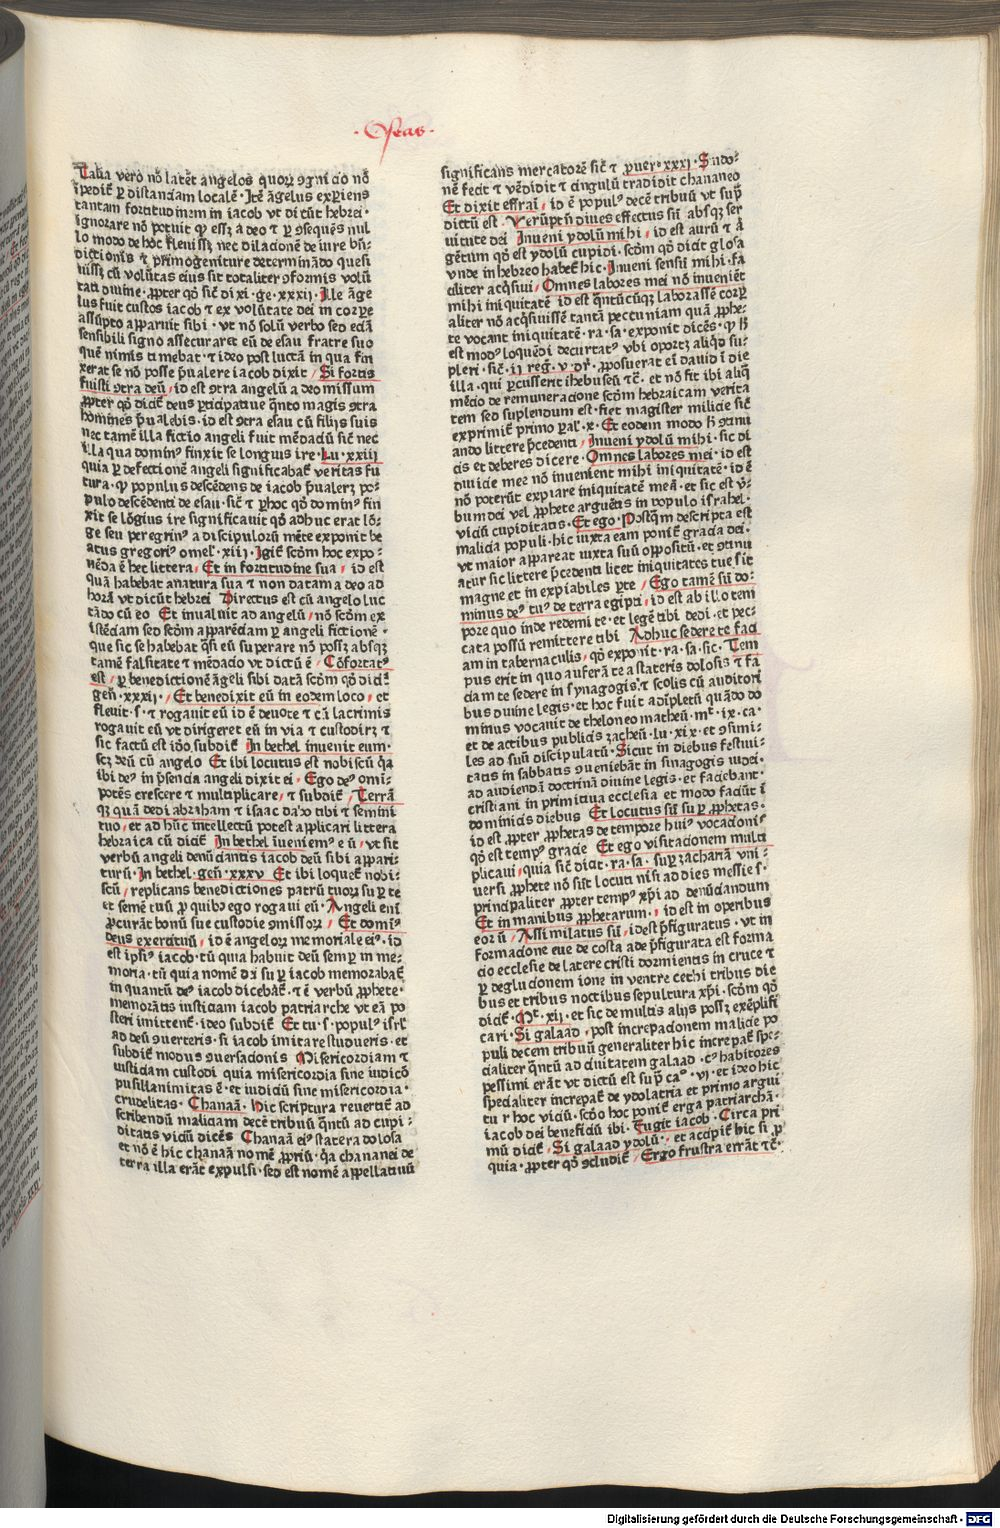 ·Oseas·
Talia vero nō latēt angelos quoꝝ ꝯgnicio nō
īpedit᷑ ꝑ distanciam localē· Itē āgelus exꝑiens
tantam fortitudinem in iacob vt dicūt hebrei·
ignorare nō potuit ꝙ essꝫ a deo ⁊ ꝑ ꝯsequēs nul
lo modo de hoc fleuissꝫ nec dilacionē de iure bn̄i
dictionis ⁊ primogeniture determinādo quesi
uissꝫ cū volūtas eius sit totaliter ꝯformis volū
tati diuine· ꝓpter qd̄ sic̄ dixi ·ge·xxxij· Ille āge
lus fuit custos iacob ⁊ ex volūtate dei in corꝑe
assūpto apparuit sibi· vt nō solū verbo sed eciā
sensibili signo assecuraret eū de esau fratre suo
quē nimis timebat· ⁊ ideo post luctā in qua fin
xerat se nō posse p̄ualere iacob dixit / Si fortis
fuisti ꝯtra deū / id est ꝯtra angelū a deo missum
ꝓpter qd̄ dicit᷑ deus ꝑticipatiue q̄nto magis ꝯtra
homines p̄ualebis· id est ꝯtra esau cū filijs suis
nec tamē illa fictio angeli fuit mēdaciū sic̄ nec
illa qua dominꝰ finxit se longius ire· Lu·xxiiij
quia ꝑ defectionē angeli significabat᷑ veritas fu
tura· ꝙ populus descēdens de iacob p̄ualerꝫ po-
pulo descēdenti de esau· sic̄ ⁊ ꝑ hoc qd̄ dominꝰ fin
xit se lōgius ire significauit qd̄ adhuc erat lō-
ge seu peregrinꝰ a discipulorū mēte exponit be
atus gregoriꝰ omel᷑·xiij· Igit᷑ scd̄m hoc expo-
nēda ē hec littera / Et in fortitudine sua / id est
quā habebat a natura sua ⁊ non datam a deo ad
horā vt dicūt hebrei Directus est cū angelo luc
tādo cū eo Et inualuit ad angelū / nō scd̄m ex
istēciam sed scd̄m apparēciam ꝑ angeli fictionē·
que sic se habebat q̄si eū superare nō possꝫ absqꝫ
tamē falsitate ⁊ mēdacio vt dictū ē / Cōfortatꝰ
est / ꝑ benedictionē āgeli sibi datā scd̄m qd̄ dicit᷑
gen̄·xxxij· / Et benedixit eū in eodem loco / et
fleuit·s·⁊ rogauit eū id ē deuote ⁊ cū lacrimis
rogauit eū vt dirigeret eū in via ⁊ custodirꝫ ⁊
sic factū est iō subdit᷑ In bethel inuenit eum·
scꝫ deū cū angelo Et ibi locutus est nobiscū q̄a
ibi deꝰ in p̄sencia angeli dixit ei· Ego deꝰ omi-
potēs crescere ⁊ multiplicare / ⁊ subdit᷑ / Terrā
qꝫ quā dedi abraham ⁊ isaac dabo tibi ⁊ semini
tuo / et ad hūc intellectū potest applicari littera
hebraica cū dicit᷑ In bethel īueniemꝰ eū / vt sit
verbū angeli denūciantis iacob deū sibi appari-
turū· In bethel·gen̄·xxxv Et ibi loquet᷑ nobi-
scū / replicans benedictiones patrū tuoꝝ suꝑ te
et semē tuū ꝓ quibꝰ ego rogaui eū· Angeli eni᷑
ꝓcurāt bonū sue custodie ꝯmissoꝝ / Et dominꝰ
deus exercituū / id ē angeloꝝ memoriale eiꝰ· id
est ipsiꝰ iacob· tū quia habuit deū semꝑ in me-
moria· tū quia nomē dei suꝑ iacob memorabat᷑
in quantū deꝰ iacob dicebat᷑· ⁊ ē verbū ꝓphete·
memorātis iusticiam iacob patriarche vt eā po
steri imittent᷑· ideo subdit᷑ Et tu·s·populꝰ isrl᷑
ad deū ꝯuerteris· si iacob imitare studueris· et
subdit᷑ modus ꝯuersacionis Misericordiam ⁊
iusticiam custodi quia misericordia sine iudicō
pusillanimitas ē· et iudiciū sine misericordia·
crudelitas· Chanaā· Hic scriptura reuertit᷑ ad
scribendū maliciam decē tribuū q̄ntū ad cupi-
ditatis viciū dicēs Chanaā eiꝰ statera dolosa
et nō ē hic chanaā nomē ꝓpriū· q̄a chananei de
terra illa erāt expulsi· sed est nomē appellatiuū
significans mercatorē sic̄ ⁊ ꝓuerꝰ·xxxj· Sindo-
nē fecit ⁊ vēdidit ⁊ cingulū tradidit chananeo
Et dixit effraī / id ē populꝰ decē tribuū vt sup̄
dictū est· Veruptn̄ diues effectus sū absqꝫ ser
uitute dei Inueni ydolū mihi / id est aurū ⁊ ar
gētum qd̄ est ydolū cupidi· scd̄m qd̄ dicit glosa
vnde in hebreo habet᷑ hic· Inueni sensū mihi· fa
ciliter acq̄siui / Omnes labores mei nō inueniēt
mihi iniquitatē id est q̄ntūcūqꝫ laborassē corꝑ
aliter nō acq̄siuissē tantā pecuniam quā ꝓphe-
te vocant iniquitatē· ra·sa· exponit dicēs· ꝙ hic
est modꝰ loquēdi decurtatꝰ vbi oportꝫ aliqd̄ su-
pleri· sic̄·ij reg̃·v·dr̄· ꝓposuerat ei᷑ dauid ī die
illa· qui ꝑcusserit ihebuseū ⁊c̄· et nō fit ibi aliq̄
mēcio de remuneracione scd̄m hebraicam verita
tem sed suplendum est· fiet magister milicie sic̄
exprimit᷑ primo ꝑal᷑·x· Et eodem modo hic ꝯtinu
ando littere p̄cedenti / Inueni ydolū mihi· sic di
cis et deberes dicere· Omnes labores mei· id est
diuicie mee nō inuenient mihi iniquitatē· id ē
nō poterūt expiare iniquitatē meā· et sic est v̄-
bum dei vel ꝓphete arguētis in populo israhel·
viciū cupiditatis· Et ego· Postq̄m descripta est
malicia populi· hic iuxta eam ponit᷑ gracia dei·
vt maior appareat iuxta suū oppositū· et ꝯtinu
atur sic littere p̄cedenti licet iniquitates tue sit
magne et in expiabiles ꝑte / Ego tamē sū do-
minus deꝰ tuꝰ de terra egipti / id est ab illo tem
pore quo inde redemi te· et legē tibi dedi· et pec-
cata possū remittere tibi Adhuc sedere te faci
am in tabernaculis / qd̄ exponit·ra·sa·sic· Tem
pus erit in quo auferā te a stateris dolosis ⁊ fa
ciam te sedere in synagogis· ⁊ scolis cū auditori
bus diuine legis· et hoc fuit adīpletū quādo do
minus vocauit de theloneo matheū·mt̄·ix·ca·
et de actibus publicis zacheū·lu·xix· et ꝯsimi-
les ad suū discipulatū· Sicut in diebus festiui-
tatis in sabbatis ꝯueniebāt in sinagogis iudei·
ad audiendā doctrinā diuine legis· et faciebant·
cristiani in primitiua ecclesia et modo faciūt ī
dominicis diebus Et locutus sū suꝑ ꝓphetas·
id est ꝓpter ꝓphetas de tempore huiꝰ vocacionis
qd̄ est tempꝰ gracie Et ego visitacionem multi
plicaui / quia sic̄ dicit·ra·sa·suꝑ zachariā vni-
uersi ꝓphete nō sūt locuti nisi ad dies messie s·
principaliter ꝓpter tempꝰ xp̄i ad denūciandum
Et in manibus ꝓphetarum· / id est in operibus
eorū / Assimilatus sū / id est p̄figuratus· vt in
formacione eue de costa ade p̄figurata est forma
cio ecclesie de latere cristi dormientis in cruce ⁊
ꝑ deglucionem ione in ventre cethi tribus die
bus et tribus noctibus sepultura xp̄i· scd̄m qd̄
dicit᷑·Mt̄·xij· et sic de multis alijs possꝫ exēplifi
cari· Si galaad / post increpacionem malicie po
puli decem tribuū generaliter hic increpat᷑ spe-
cialiter q̄ntū ad ciuitatem galaad· cꝰ habitores
pessimi erāt vt dictū est sup̄ caꝰ·vj· et ideo hic
specialiter increpat᷑ de ydolatria et primo argui
tur hoc viciū· scd̄o hoc ponit᷑ erga patriarchā·
iacob dei beneficiū ibi· Fugit iacob· Circa pri
mū dicit᷑ / Si galaad ydolū· / et accipit᷑ hic si ꝓ
quia· ꝓpter qd̄ ꝯcludit᷑ / Ergo frustra errāt ⁊c̄·
Digitalisierung gefördert durch die Deutsche Forschungsgemeinschaft - DFG